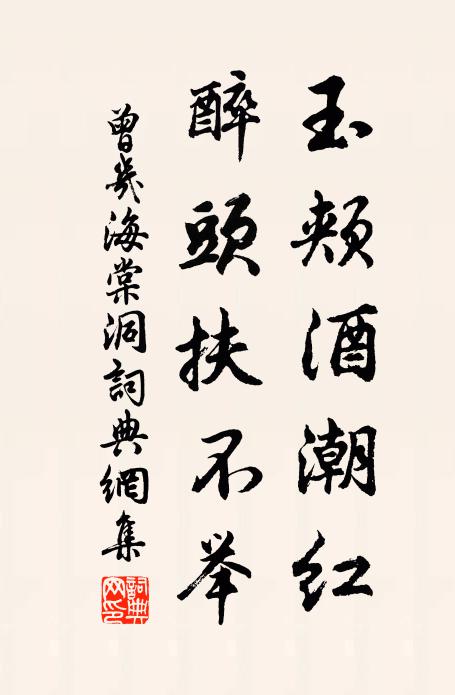 玉頰酒潮红
醉頭扶不举
曾幾海棠洞詞典網集
詞典網印